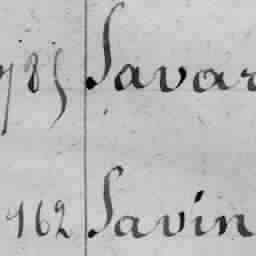 785 Savar
962 Savin